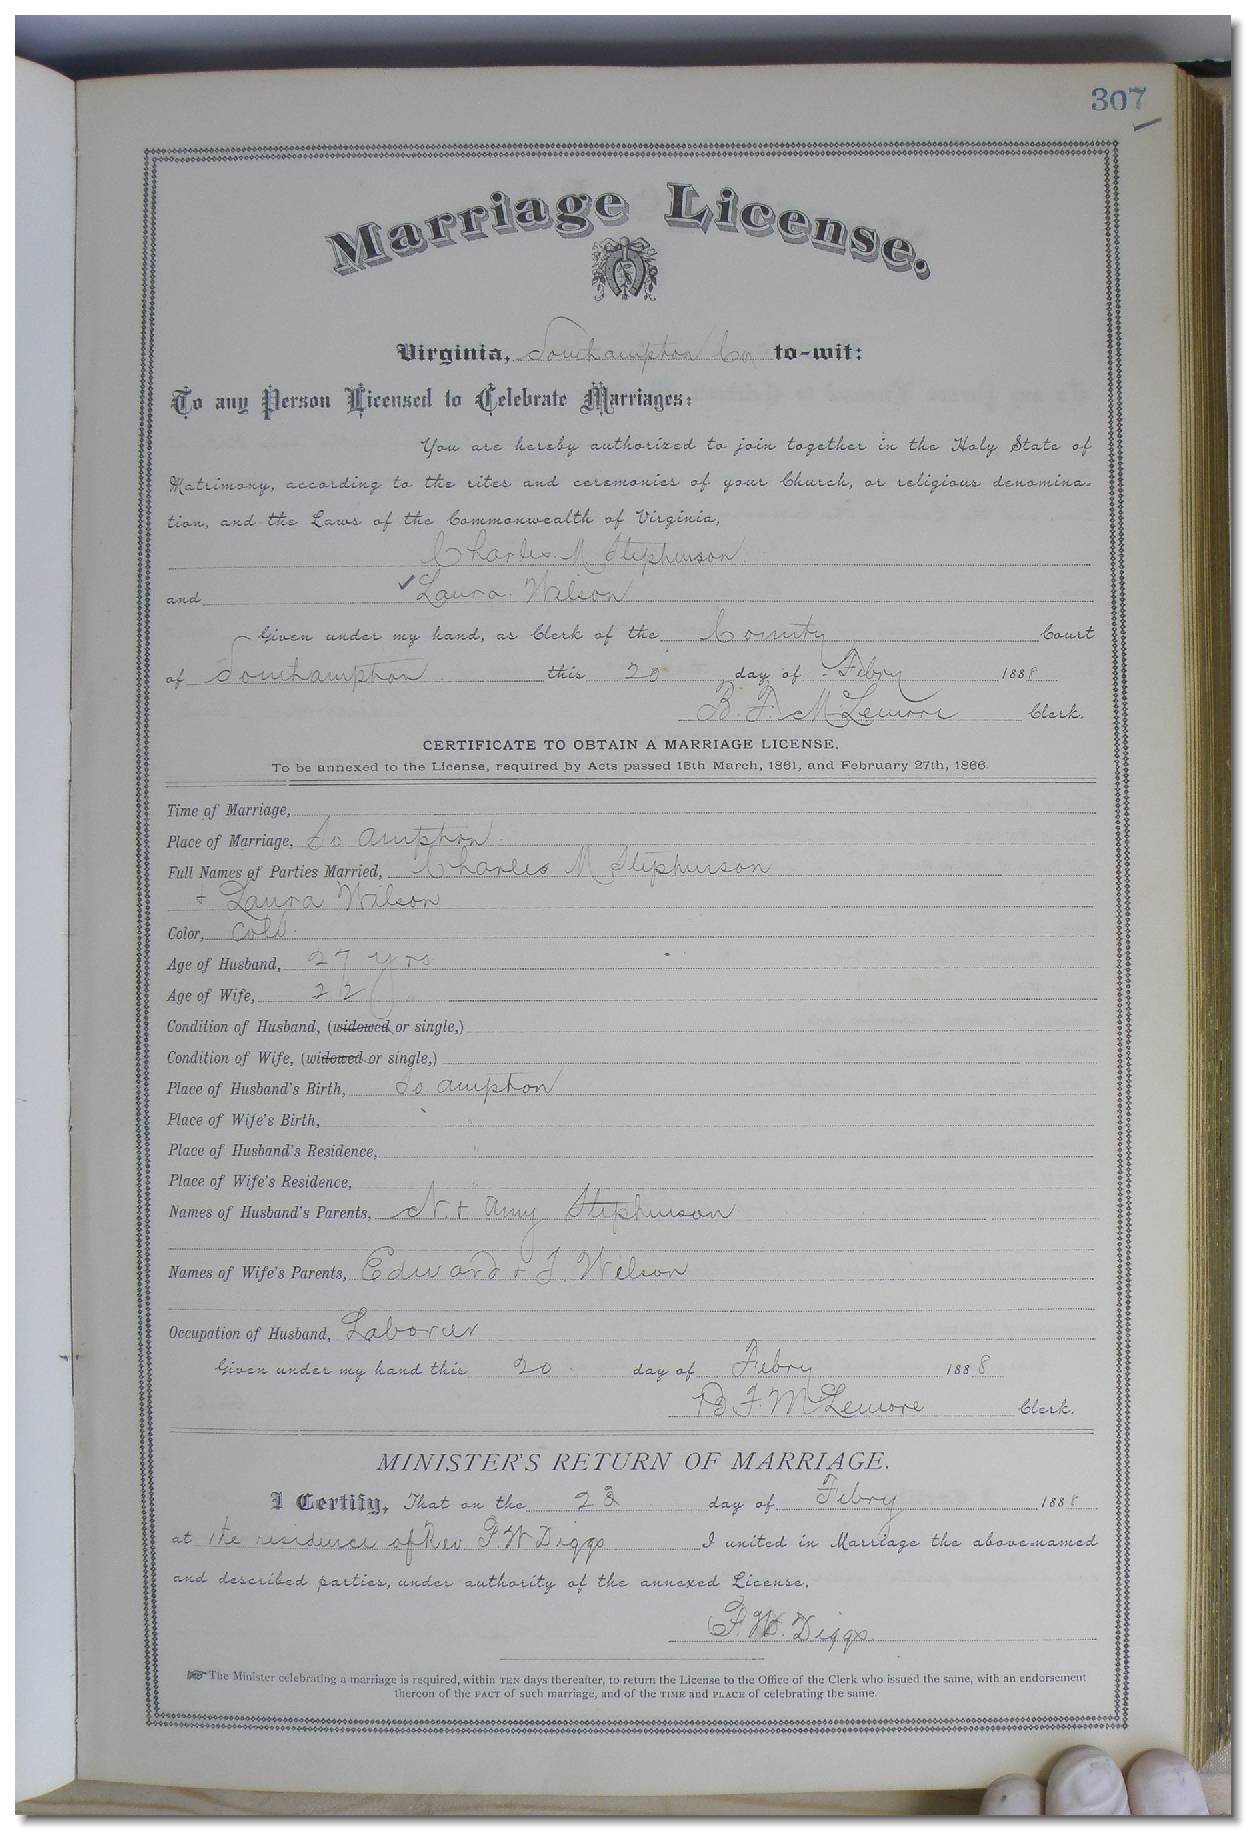 307
Marriage License.
Virginia, Southampton Co to-wit:
To any Person Licensed to Celebrate Marriages:
You are hereby authorized to join together in the Holy State of
Matrimony, according to the rites and ceremonies of your Church, or religious denomina-
tion, and the Laws of the Commonwealth of Virginia,
Charles M Stephenson
and Laura Wilson
Given under my hand, as Clerk of the County Court
of Southampton this 20 day of Febry 1888
B. F. McLemore Clerk.
CERTIFICATE TO OBTAIN A MARRIAGE LICENSE,
To be annexed to the License, required by Acts passed 15th March, 1861, and February 27th, 1866.
Time of Marriage,
Place of Marriage, So ampton
Full Names of Parties Married, Charles M Stephenson
+ Laura Wilson
Color, Cold.
Age of Husband, 27 yrs
Age of Wife, 22 "
Condition of Husband, (widowed or single,)
Condition of Wife, (widowed or single,)
Place of Husband's Birth, So ampton
Place of Wife's Birth, "
Place of Husband's Residence, "
Place of Wife's Residence, "
Names of Husband's Parents, N. + Amy Stephenson
Names of Wife's Parents, Edward + J. Wilson
Occupation of Husband, Laborer
Given under my hand this 20 day of Febry 1888
B F. McLemore Clerk.
MINISTER'S RETURN OF MARRIAGE.
I Certify, That on the day of Febry 1888
at the residence of Rev. P. W Diggs I united in Marriage the above-named
and described parties, under authority of the annexed License.
P. W. Diggs
☞ The Minister celebrating a marriage is required, within TEN days thereafter, to return the License to the Office of the Clerk who issued the same, with an endorsement
thereon of the FACT of such marriage, and of the TIME and PLACE of celebrating the same.